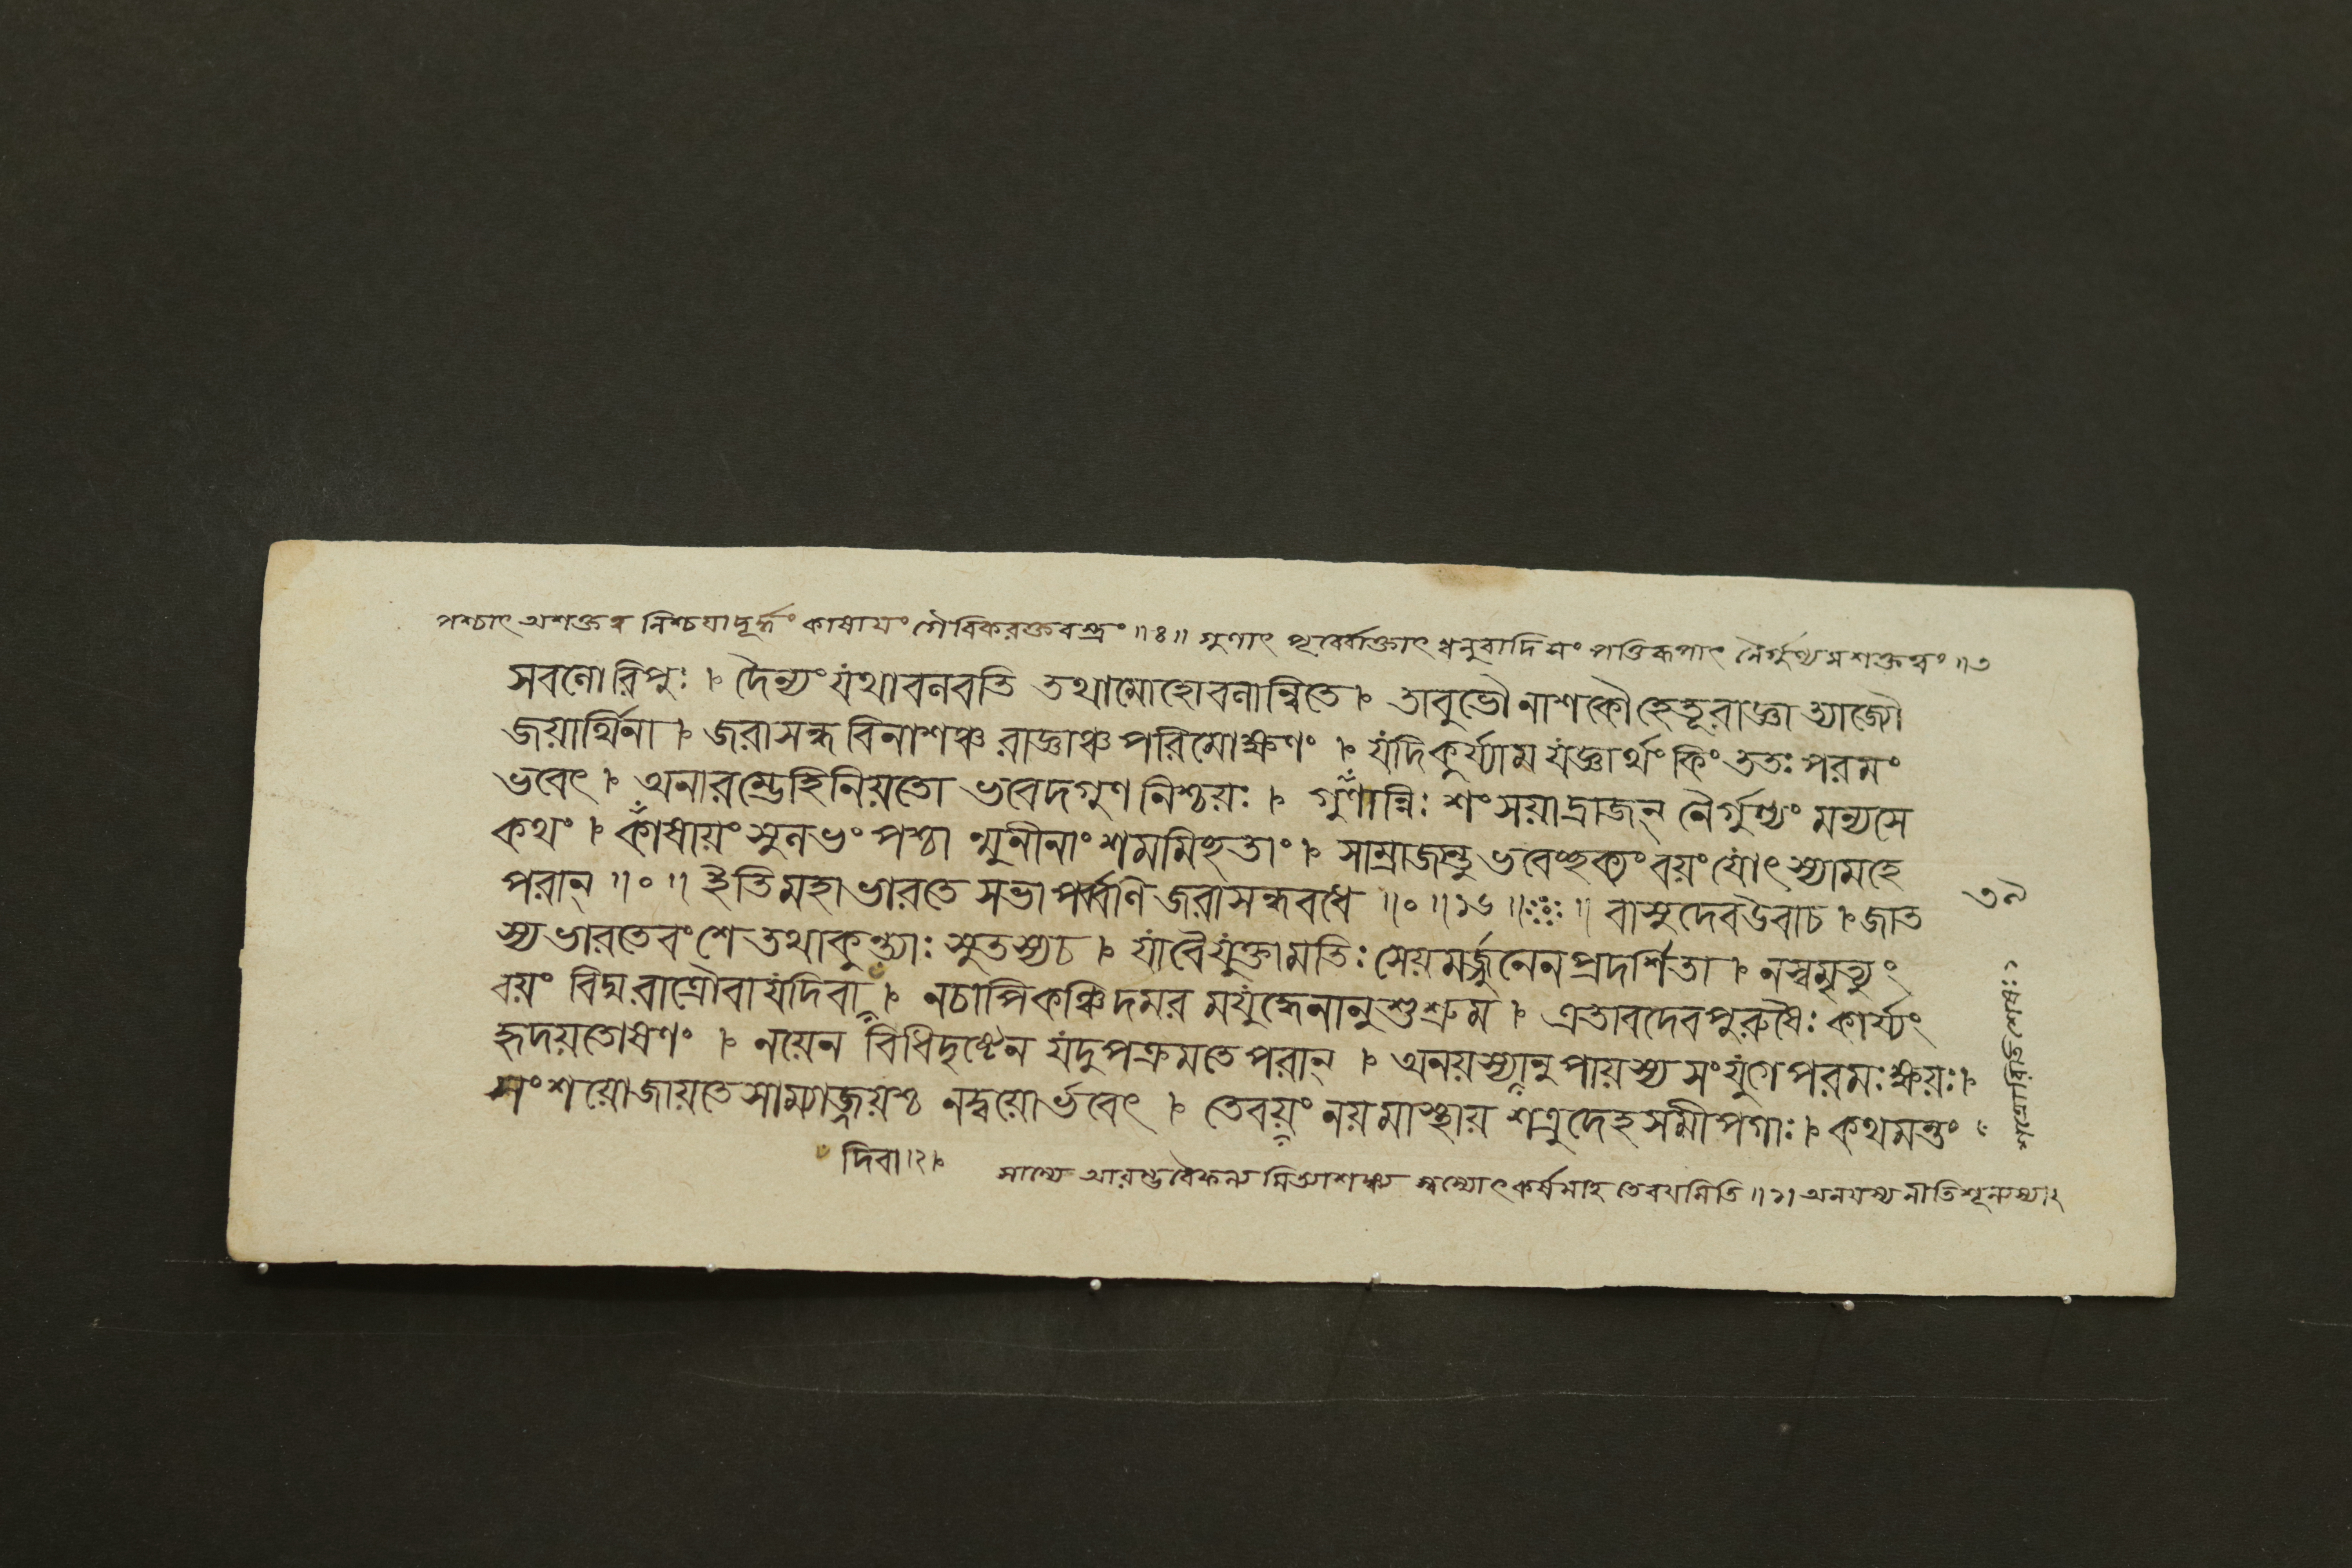 পশ্চাৎ অশক্তত্ব নিশ্চয়াদূর্দ্ধং কাষায়ং গৈরিকরক্তবস্ত্রং ॥৪॥ গুণাৎ পূর্ব্বোক্তাৎ ধনুরাদি নৈর্গুণ্যমশক্তত্বং ॥৩
সবলোরিপুঃ । দৈন্যং যথাবলবতি তথামোহোবলান্বিতে । তাবুভৌ নাশকৌহেতূরাজ্ঞা ত্যাজ্যৌ
জয়ার্থিনা । জরাসন্ধ বিনাশঞ্চ রাজ্ঞাঞ্চ পরিমোক্ষণং । যদিকুর্য্যাম যজ্ঞার্থং কিং ততঃ পরমং
ভবেৎ । অনারম্ভেহিনিয়তো ভবেদগুণ নিশ্চয়ঃ । গুণান্নিঃ শংসয়াদ্রাজন্ নৈর্গুণ্যং মন্যসে
কথং । কাষায়ং সুলভং পশ্চা ন্মুনীনাং শমমিচ্ছতাং । সাম্রাজ্যন্তু ভবেচ্ছক্যং বয়ং যোৎস্যামহে
পরান্ ॥০॥ ইতি মহাভারতে সভাপর্ব্বণি জরাসন্ধবধে ॥০॥১৬॥ ॥ বাসুদেবউবাচ । জাত
স্য ভারতেবংশে তথাকুন্ত্যাঃ সুতস্যচ । যাবৈযুক্তামতিঃ সেয়মর্জ্জুনেনপ্রদর্শিতা । নস্বমৃত্যুং
বয়ং বিদ্মরাত্রৌবা যদিবা । নচাপিকঞ্চিদমর ময়ুদ্ধেনানুশুশ্রুম । এতাবদেবপুরুষৈঃ কার্য্যং
হৃদয়তোষণং । নয়েন বিধিদৃষ্টেন যদুপক্রমতেপরান্ । অনয়স্যানুপায়স্য সংযুগেপরমঃক্ষয়ঃ ।
সংশয়োজায়তেসাম্যাজ্জয়শ্চ নদ্বয়োর্ভবেৎ । তেবয়ং নয়মাস্থায় শত্রুদেহসমীপগাঃ । কথমন্তং
দিবা।২।
সাম্যে তেবয়মিতি ॥২। অনয়স্য নীতিশূন্যস্য।২
৩৯